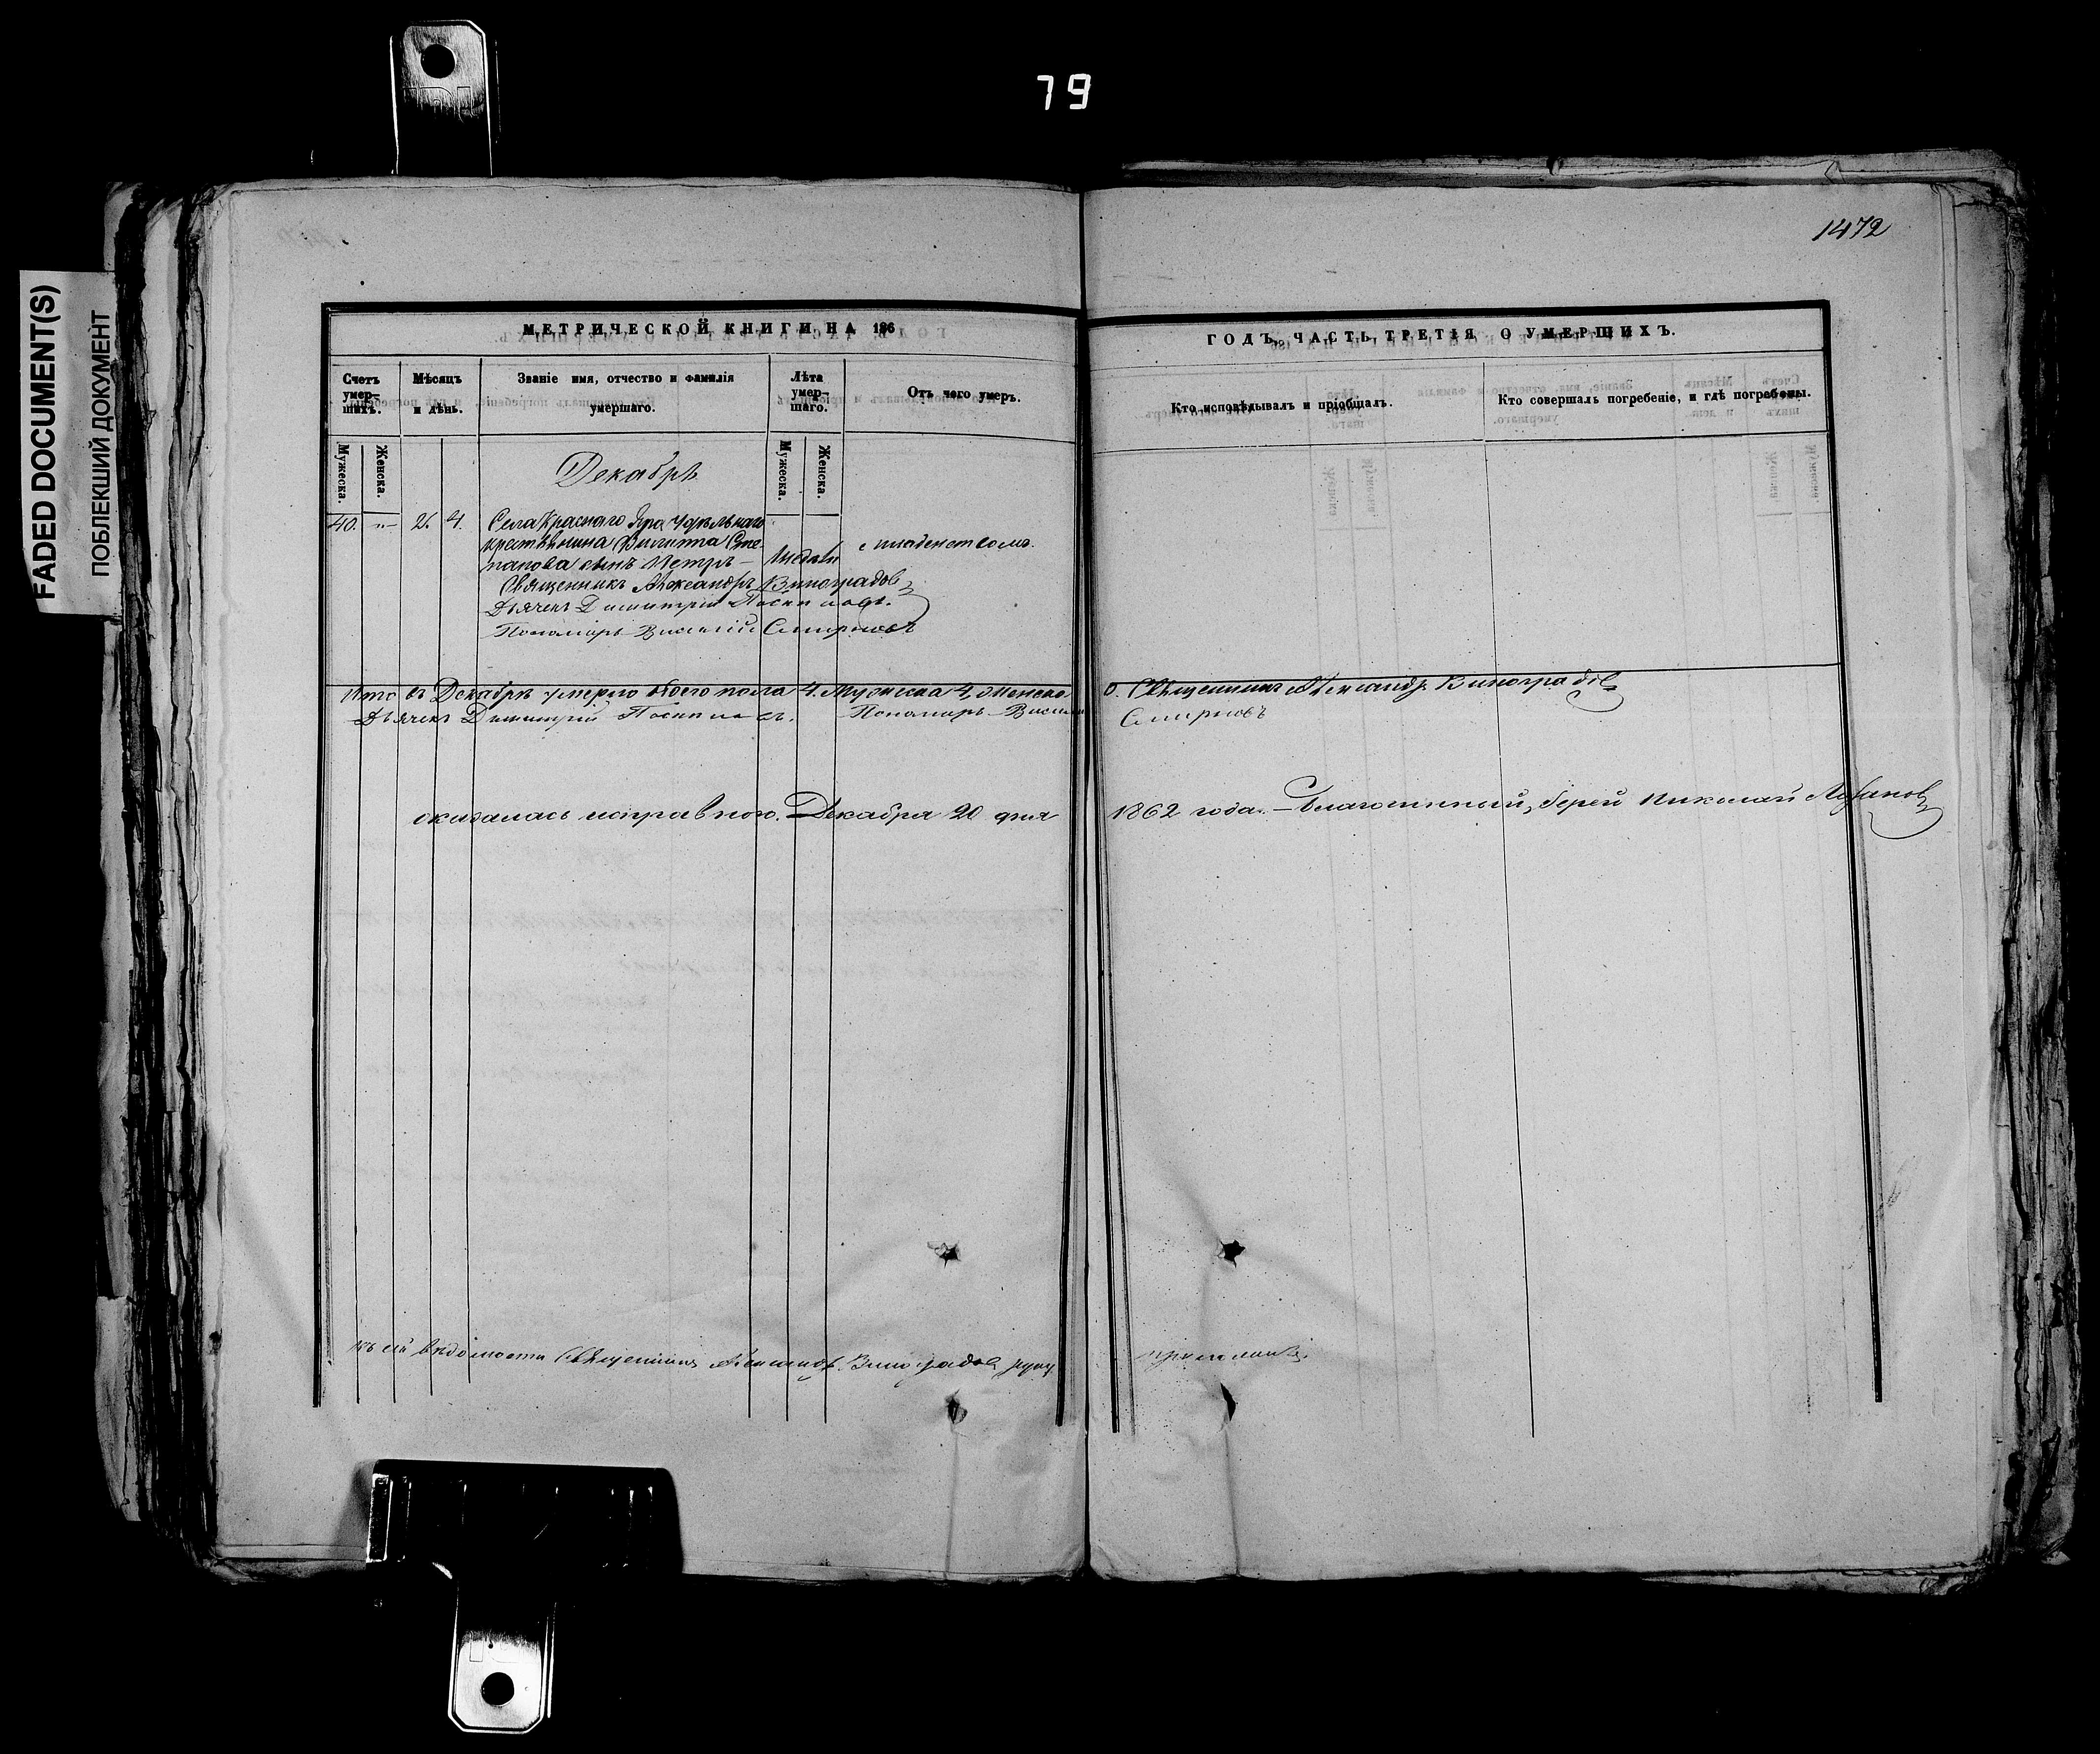 79
FADED DOCUMENT(S)
ПОБЛЕКШИЙ ДОКУМЕНТ
1472
МЕТРИЧЕСКОЙ КНИГИ НА 186
ГОДЪ, ЧАСТЬ ТРЕТІЯ О УМЕРШИХЪ.
Счетъ умер-шихъ.
Мѣсяцъ и день.
Званіе имя, отчество и фамилія умершаго.
Лѣта умер-шаго.
Отъ чего умеръ.
Кто исповѣдывалъ и пріобщалъ.
Кто совершалъ погребеніе, и гдѣ погребены.
Мужеска.
Женска.
Мужеска.
Женска.
Декабрь
40. „ 2. 4. Села Краснаго Яра удѣльнаго
крестьянина Филиппа Сте-
панова сынъ Петръ – недѣли младенческою.
Священникъ Александръ Виноградовъ
Дьячекъ Димитрій
Пономарь Василій Смирновъ
Итого въ Декабрѣ умерло обоего пола 4. Мужеска 4, Женска 0. Священникъ Александръ Виноградовъ
Дьячекъ Димитрій Пономарь Василій Смирновъ
оказалась исправною. Декабря 20 дня 1862 года. – Благочинный, Іерей Николай
Къ сей вѣдомости Священникъ Александръ Виноградовъ руку приложилъ.